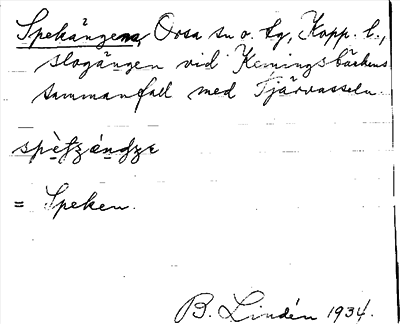 Spekängena, Orsa sn o. tg, Kopp. l.,
slogängen vid Kemingsbäckens
sammanfall med Fjärvasseln.
spètʒándʒe
= Speken.
B. Lindén 1934.